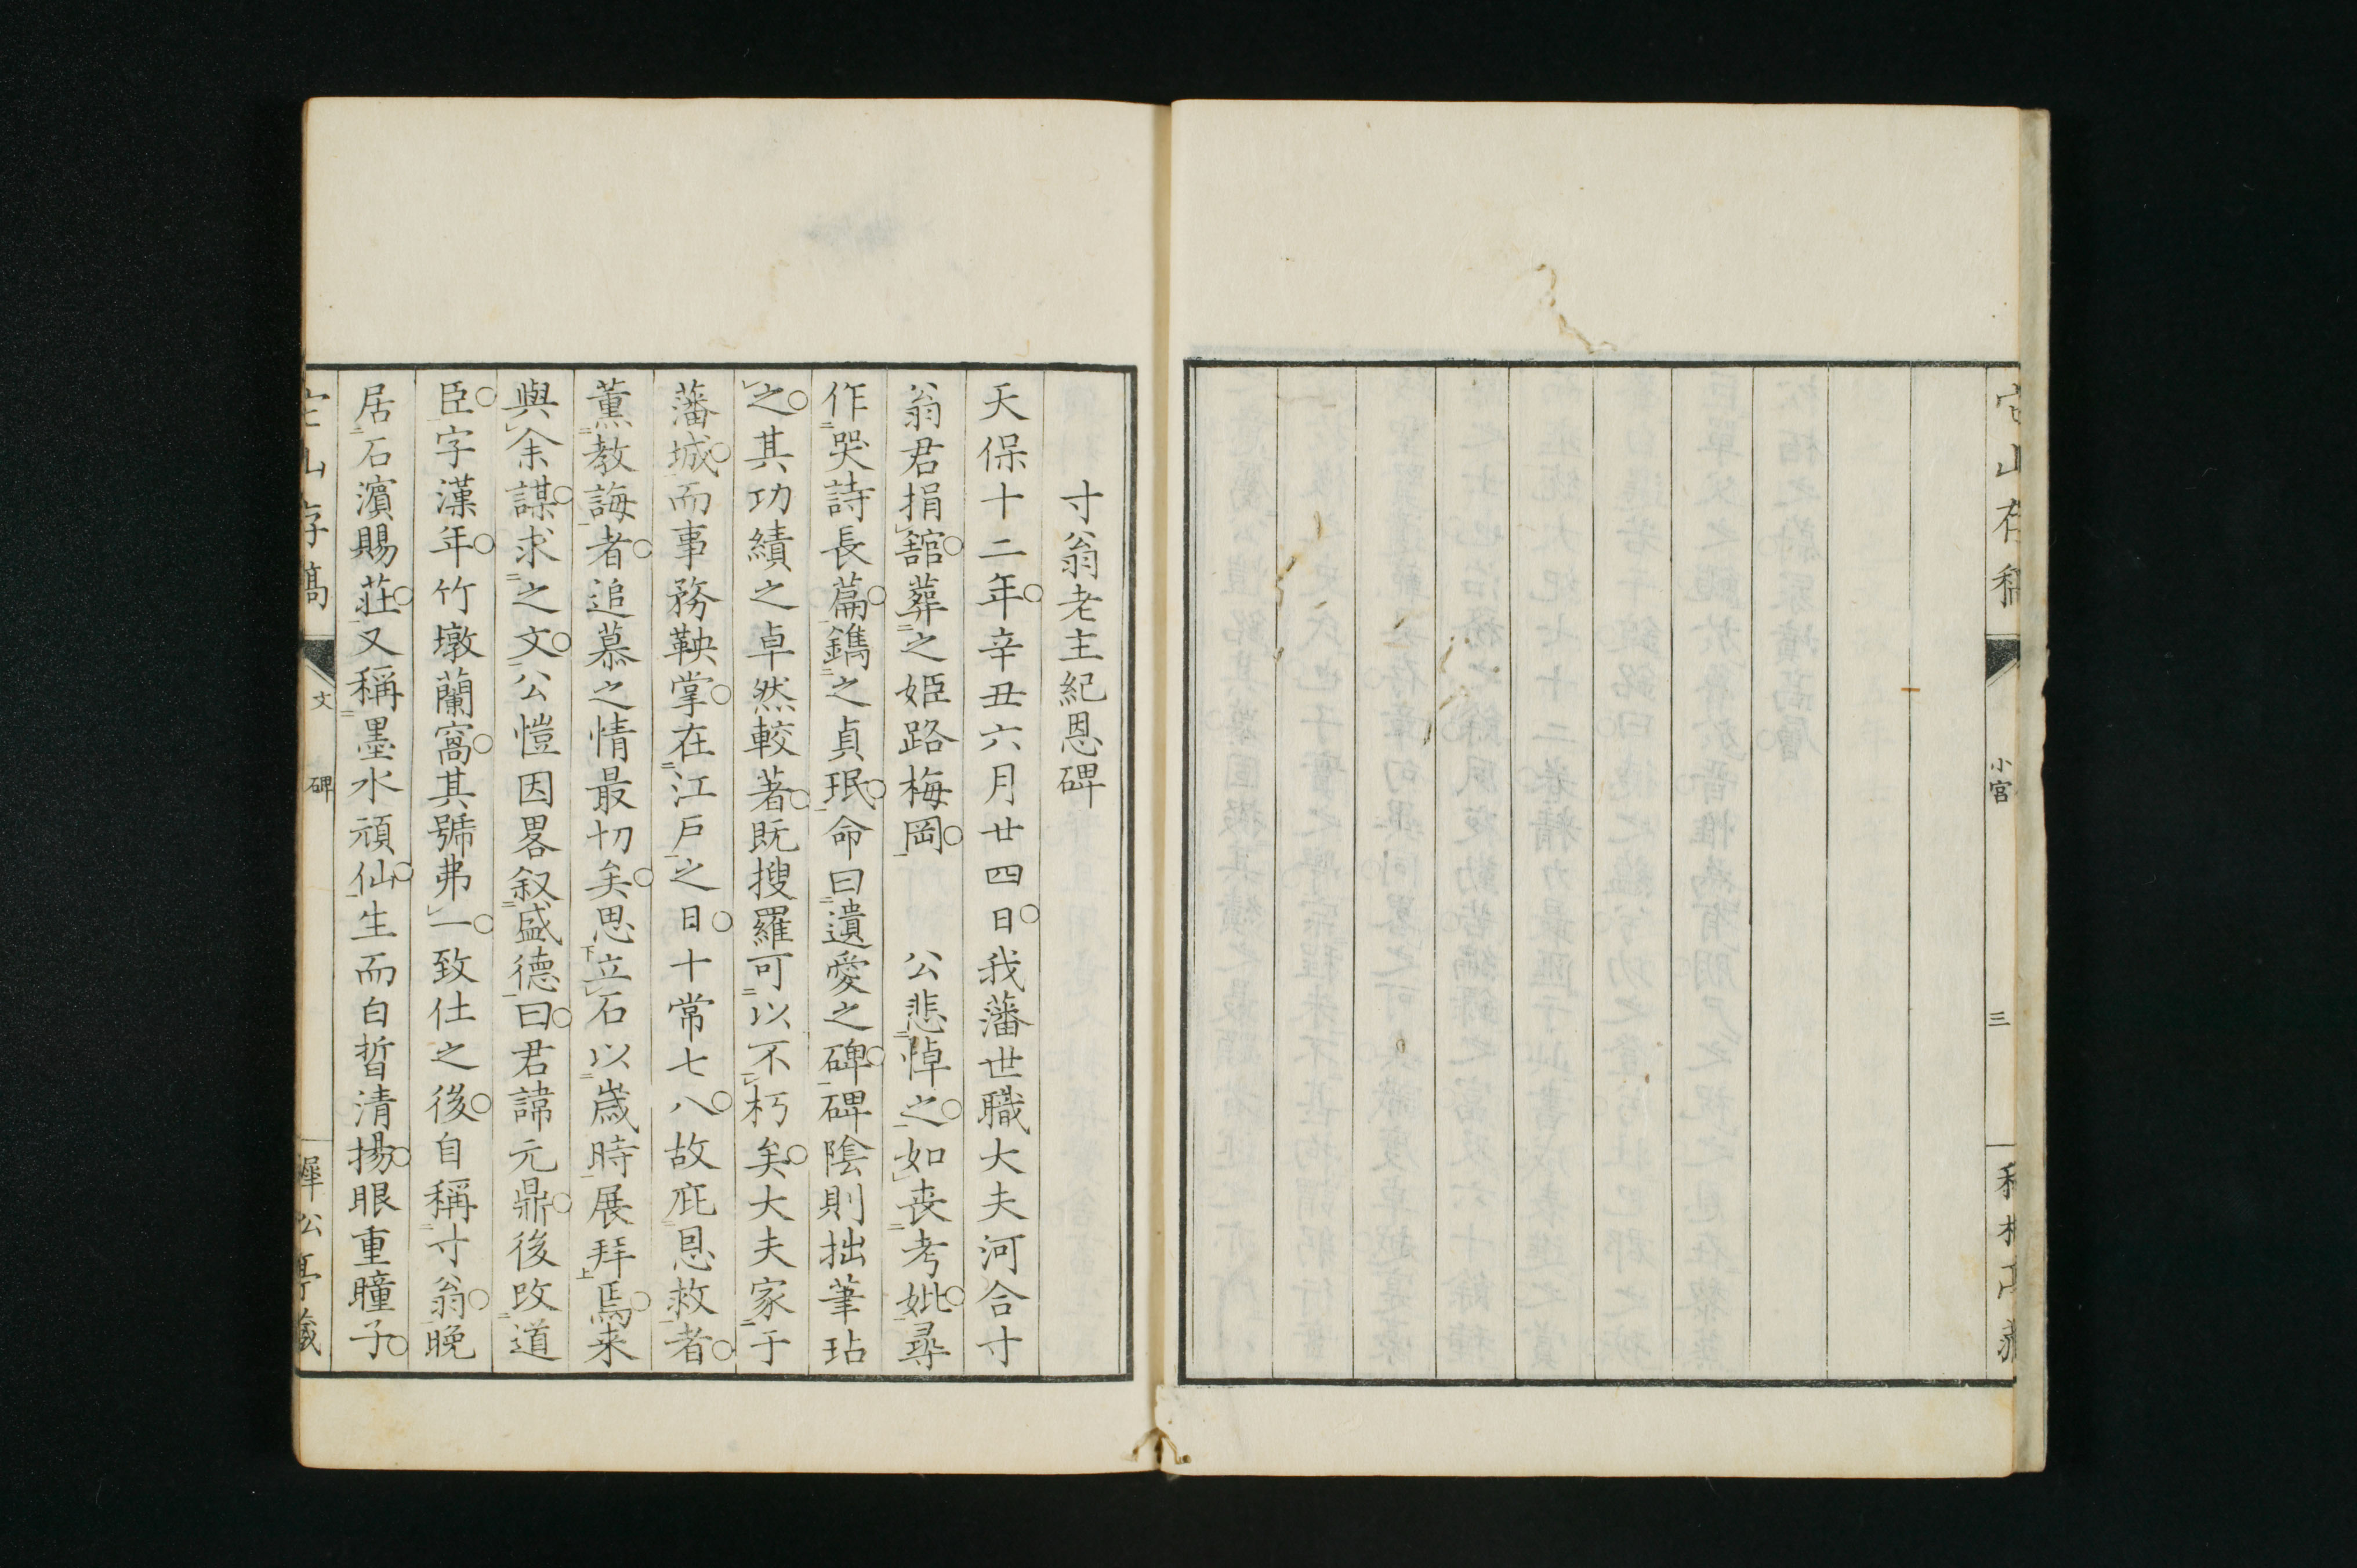 小官
三
寸翁老主紀恩碑
天保十二年辛丑六月廿四日我藩世職大夫河合寸
翁君捐舘葬之姫路梅岡　公悲悼之如喪考妣尋
作哭詩長篇鐫之貞珉命曰遺愛之碑碑陰則拙筆玷
之其功績之卓然較著既搜羅可以不朽矣大夫家于
藩城而事務鞅掌在江戸之日十常七八故庇恩救者
薫教誨者追慕之情最切矣思立石以歳時展拜焉来
與余謀求之文公愷因畧叙盛德曰君諱元鼎後改道
臣字漢年竹墩蘭窩其號弗一致仕之後自稱寸翁晩
居石濵賜莊又稱墨水頑仙生而白晳清揚眼重瞳子
山存稾
文
碑